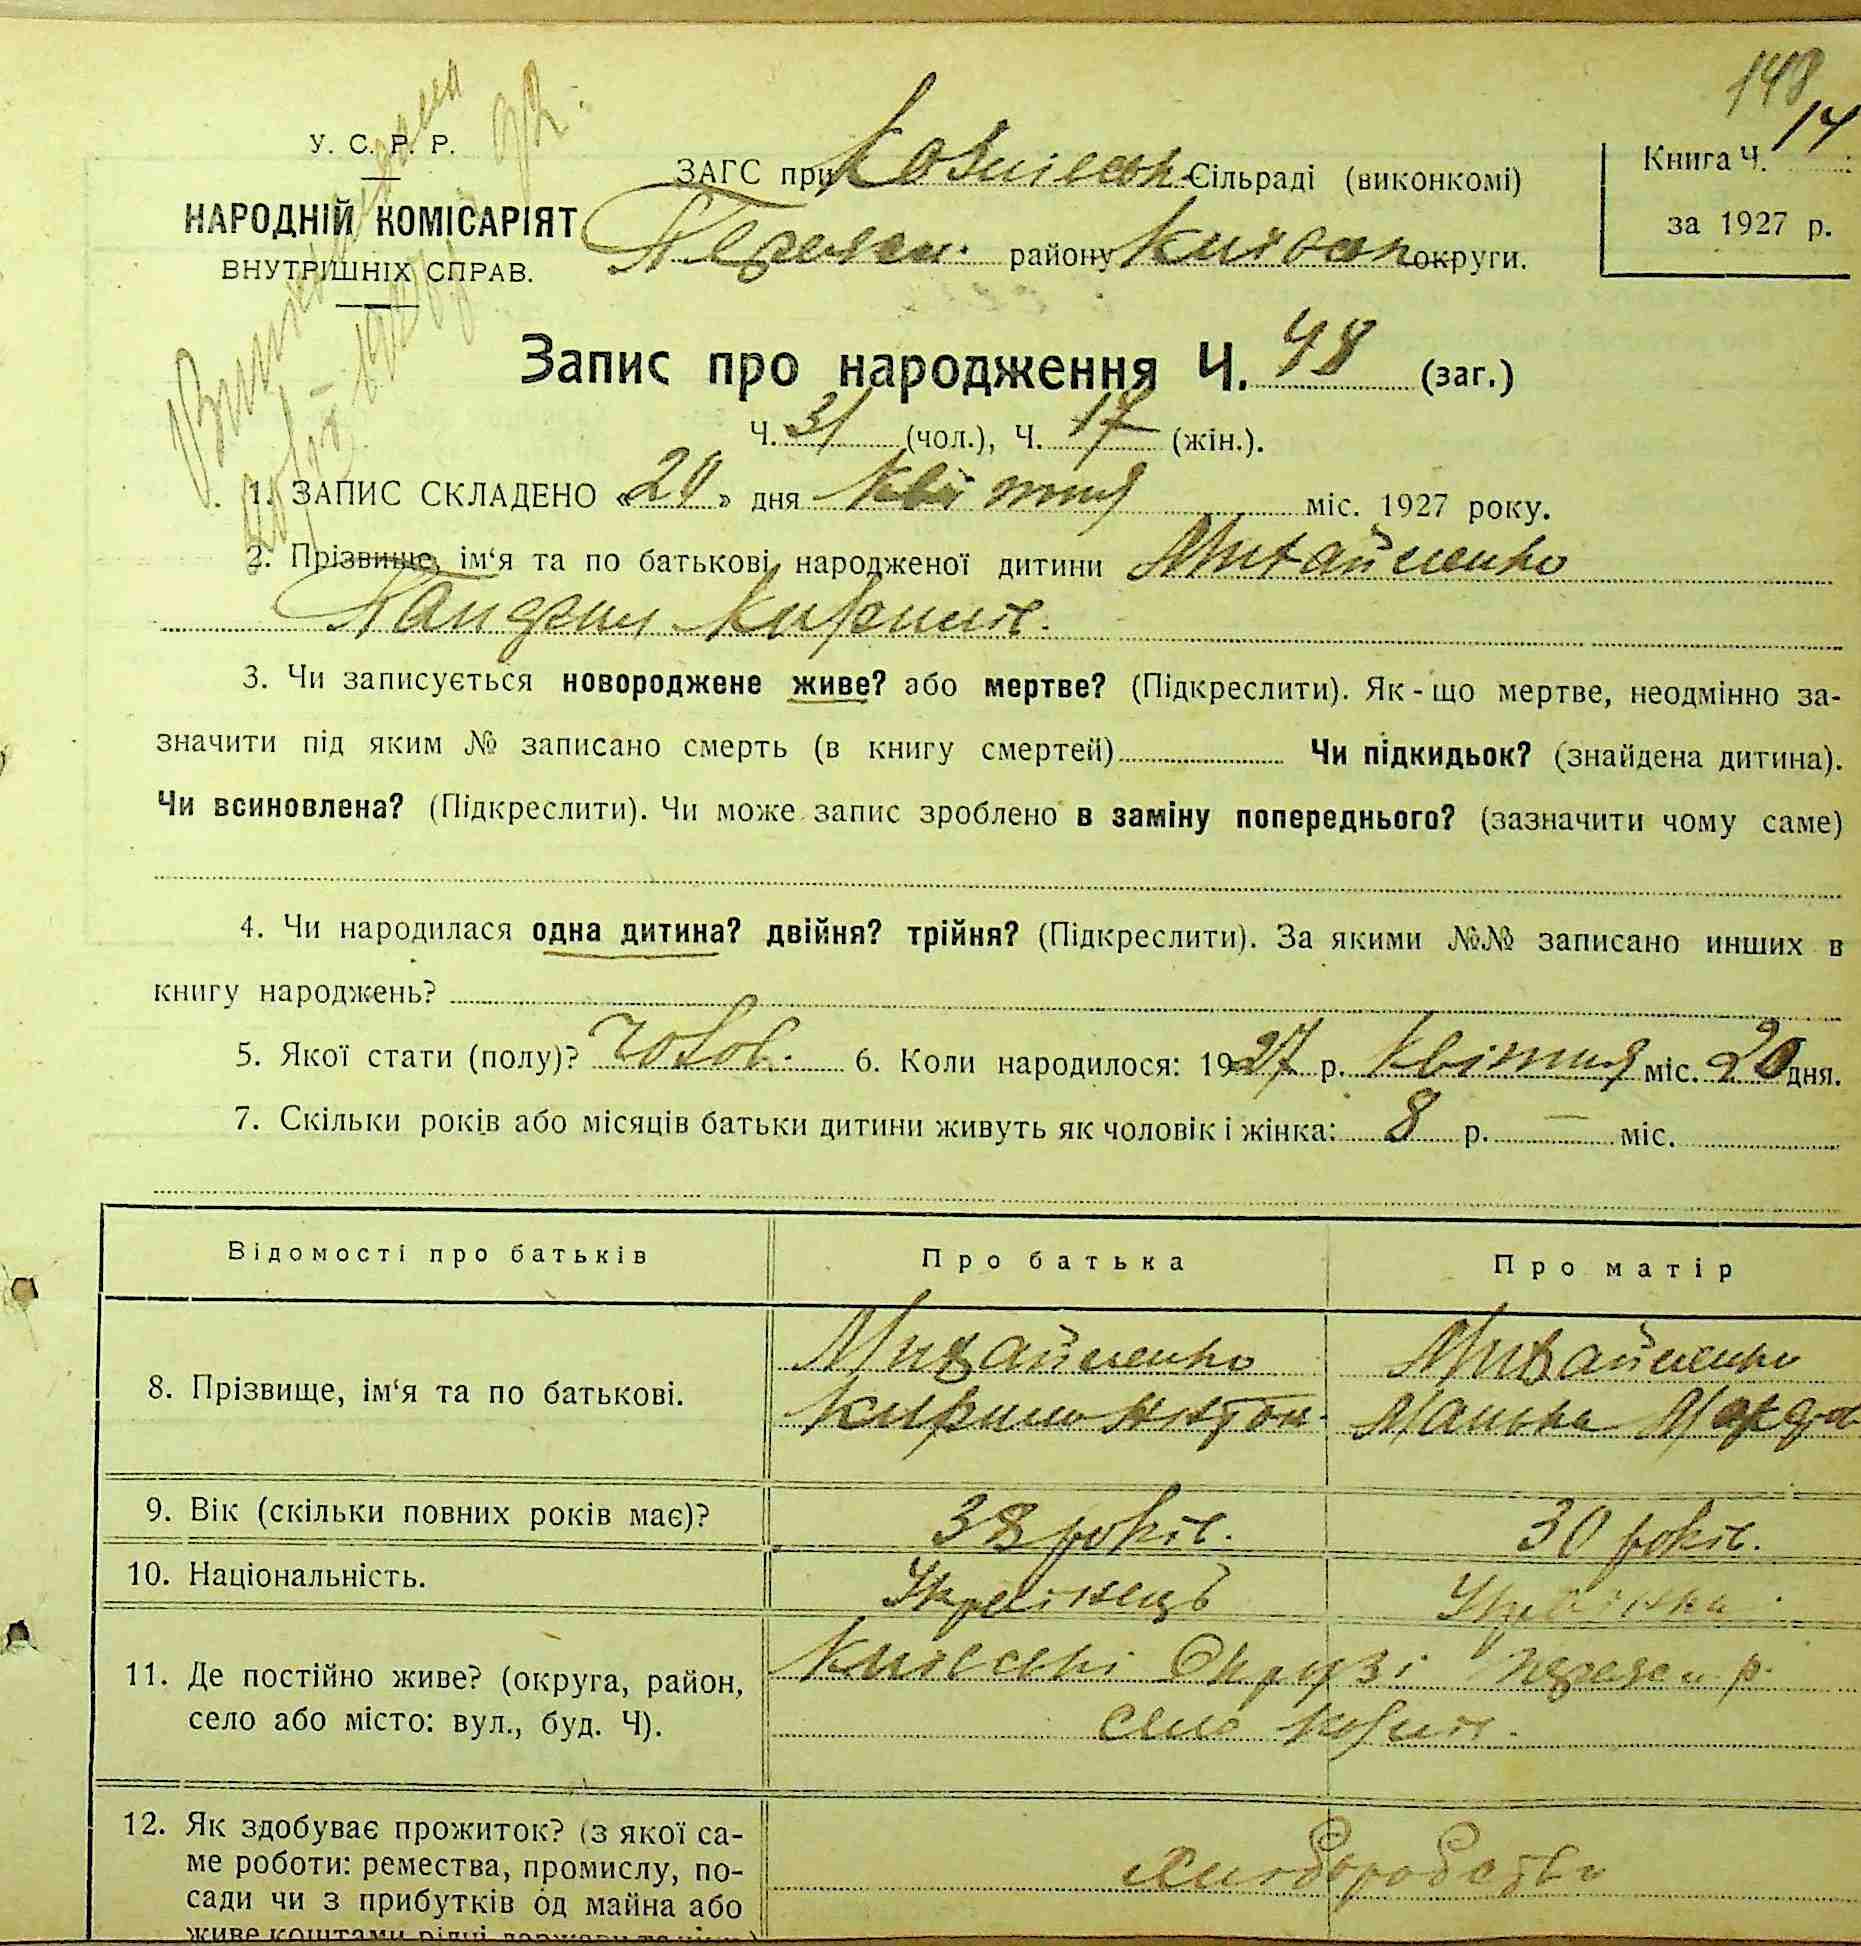 148
У. С. Р. Р.
НАРОДНІЙ КОМІСАРІЯТ
ВНУТРІШНІХ СПРАВ.
ЗАГС при Ковшісск. Сільраді (виконкомі)
району Київськ округи.
Книга Ч. 14
за 1927 р.
Запис про народження Ч. 48 (заг.)
Ч. 31 (чол.), Ч. 17 (жін.).
1. ЗАПИС СКЛАДЕНО « » дня квітня міс. 1927 року.
2. Прізвище, ім‘я та по батькові народженої дитини Михайленко
Кирилів.
3. Чи записується новороджене живе? або мертве? (Підкреслити). Як-що мертве, неодмінно за-
значити під яким № записано смерть (в книгу смертей) Чи підкидьок? (знайдена дитина).
Чи всиновлена? (Підкреслити). Чи може запис зроблено в заміну попереднього? (зазначити чому саме)
4. Чи народилася одна дитина? двійня? трійня? (Підкреслити). За якими №№ записано инших в
книгу народжень?
5. Якої стати (полу)? чолов. 6. Коли народилося: 1927 р. квітня міс. 20 дня.
7. Скільки років або місяців батьки дитини живуть як чоловік і жінка: 8 р. — міс.
Відомості про батьків Про батька Про матір
8. Прізвище, ім‘я та по батькові.
Михайленко Михайленко
Кирило
9. Вік (скільки повних років має)? 38 років. 30 років.
10. Національність. Українець Українка.
11. Де постійно живе? (округа, район,
село або місто: вул., буд. Ч).
Київські Окрузі р.
село
12. Як здобуває прожиток? (з якої са-
ме роботи: ремества, промислу, по-
сади чи з прибутків од майна або
хліборобство